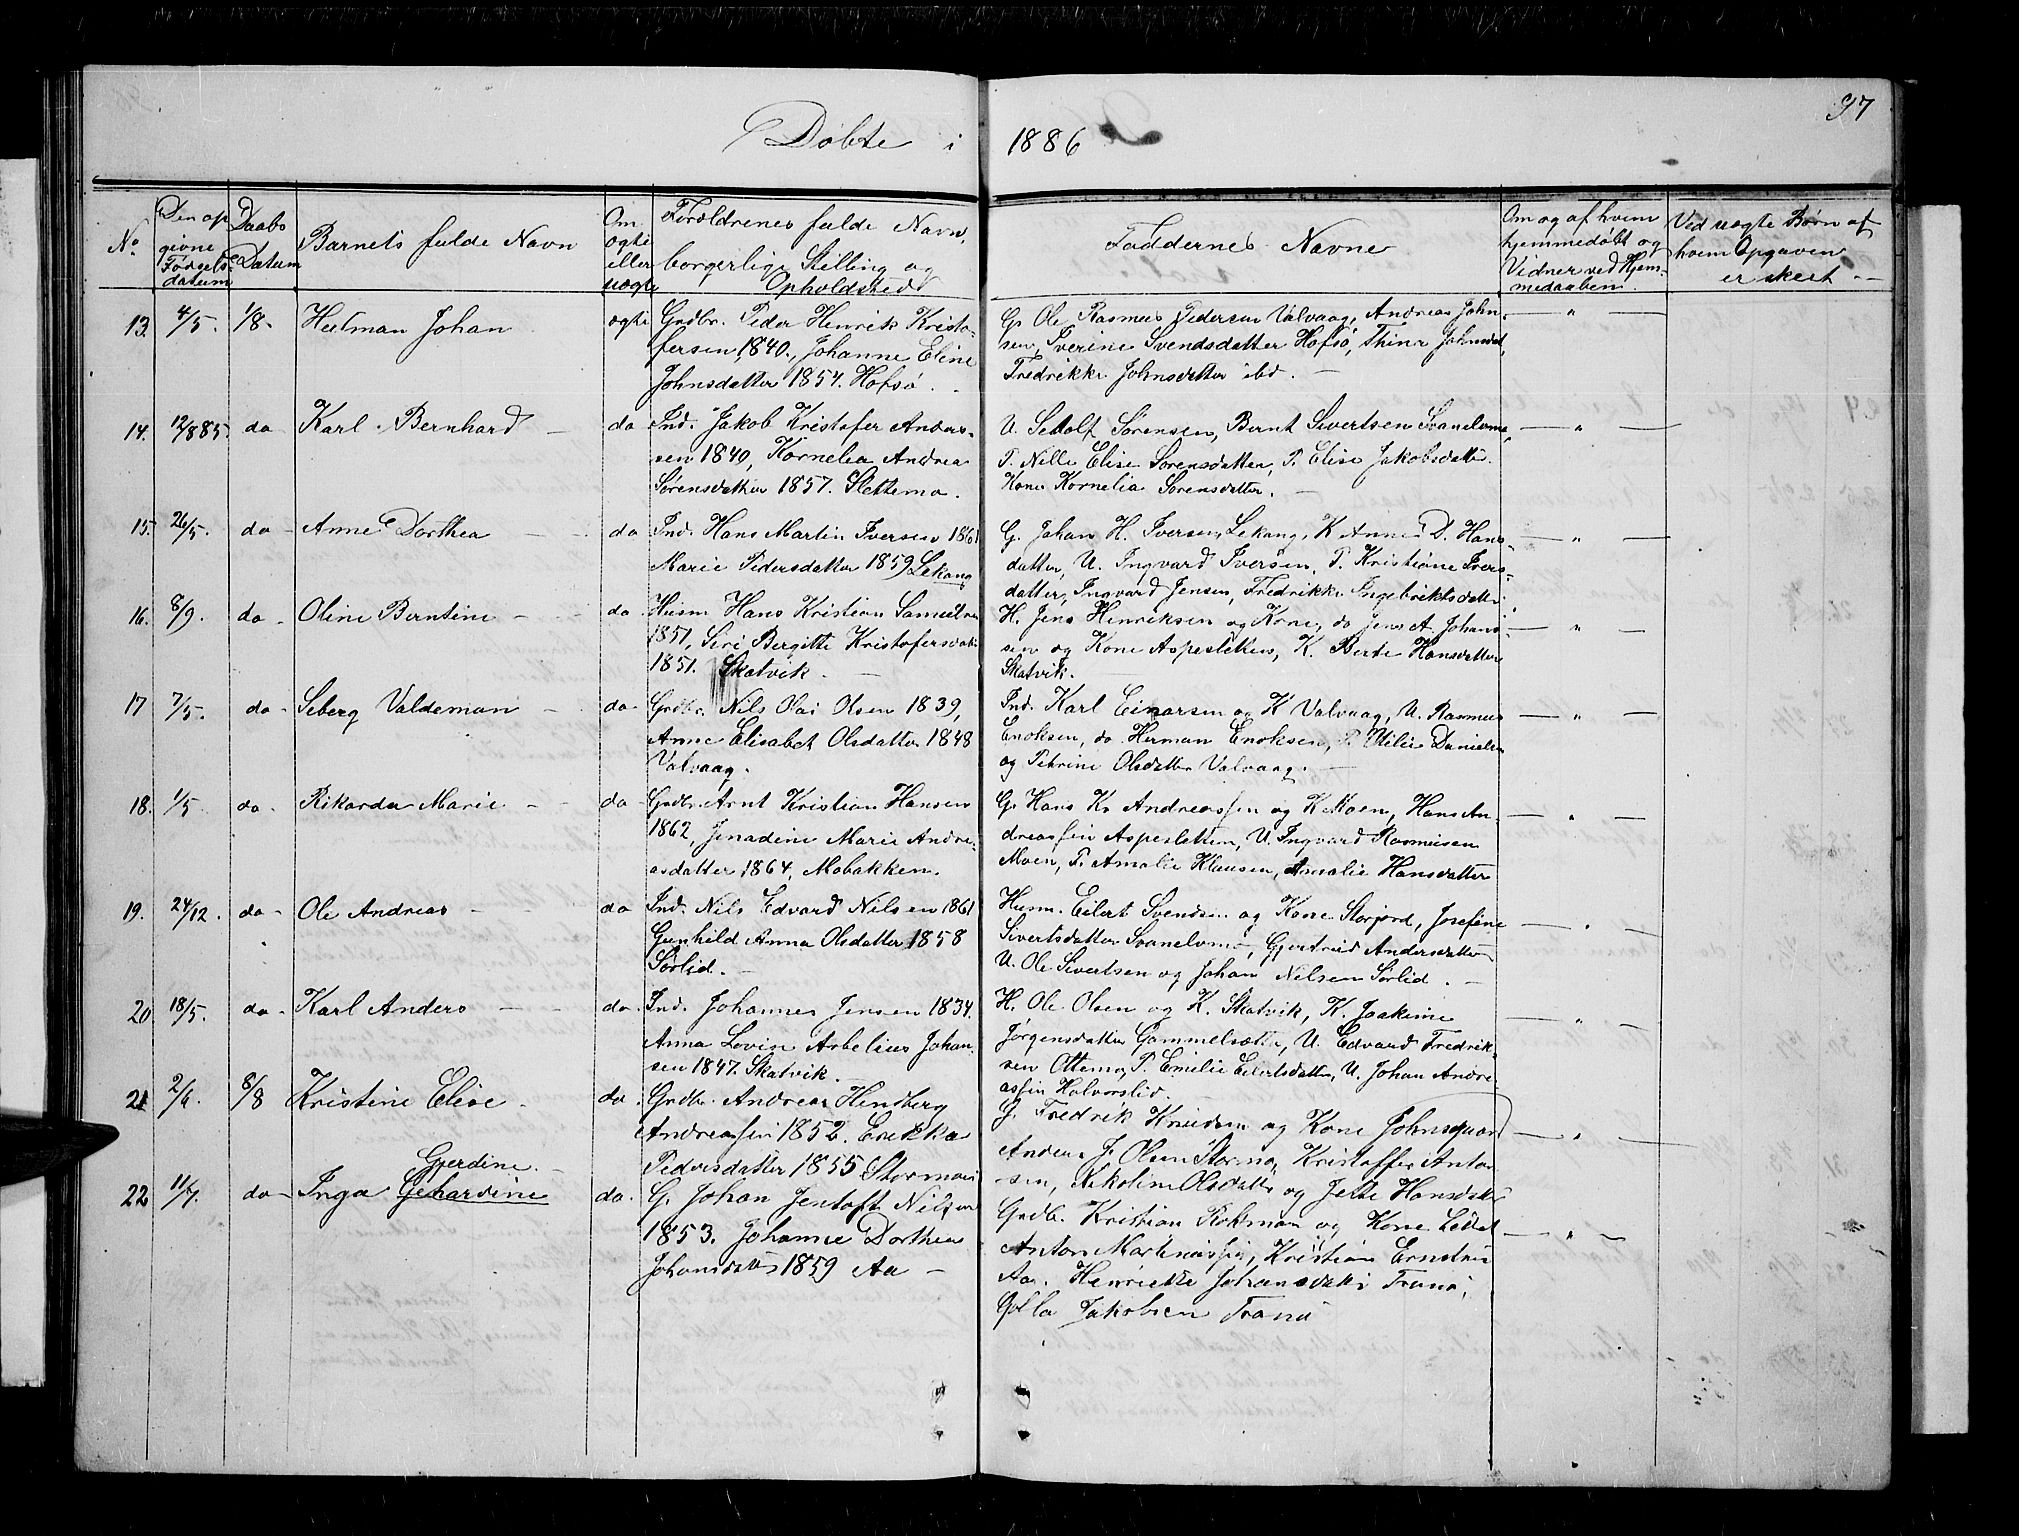 97
Døbte i 1886
No
Den op
givne
Fødsels-
datum
Daabs
Datum
Barnets fulde Navn
Om
ægte
eller
uægte
Forældrenes fulde Navn,
borgerlige Stilling og
Opholdsted
Faddernes Navne
Om og af hvem
hjemmedøbt og
Vidner ved Hjem-
medaaben.
Ved uægte Børn af
hvem Opgaven
er skeet -
13. 4/5. 1/8- Hartman Johan ægte Grdbr. Peder Henrik Kristo-
fersen 1840., Johanne Eline
Johnsdatter 1854. Hofsø.
G. Ole Rasmus Pedersen Valvaag, Andreas John-
sen, Sverine Svendsdatter Hofsø, Thina Johnsdat,
Fredrikke Johnsdatter ibd. -
14. 12/885. do - Karl Bernhard - do Ind. Jakob Kristofer Anders-
sen 1840, Kornelia Andrea
Sørensdatter 1857. Slettemo.
U. Setolf Sørensen, Bernt Sivertsen Svanelvmo,
P. Nille Elise Sørensdatter, P. Elise Jakobsdatte.
Kone Kornelia Sørensdatter. -
15. 26/5. do - Anne Dorthea - do Ind. Hans Martin Iversen 1861
Marie Pedersdatter 1859 Lekang
G. Johan H. Iversen, Lekang, K. Anne D. Hans-
datter, U. Ingvard Iversen, P. Kristine Ivers-
datter, Ingvard Jensen, Fredrikke Ingebriktsdatte
16. 8/9. do - Oline Berntine - do Husm Hans Kristian Samuelsen
1851, Siri Bergitte Kristofersdatt
1851. Skatvik. -
H. Jens Henriksen og Kone, do Jens A. Johan-
sen og Kone Aspesletten, K. Berte Hansdatter
Skatvik. -
17 7/5. do - Seberg Valdeman - do - Grdbr. Nils Olai Olsen 1839,
Anne Elisabet Olsdatter 1848
Valvaag.
Ind. Karl Einarsen og K Valvaag, U. Rasmus
Enoksen, do Herman Enoksen, P. Otilie Danielsn
og Petrine Olsdatter Valvaag. -
18. 1/5. do - Rikarda Marie - - do Grdbr. Arnt Kristian Hansen
1862, Jenadine Marie Andre-
asdatter 1864, Mobakken.
G. Hans Kr Andreassen og K Moen, Hans An-
dreassen Aspesletten, U. Ingvard Rasmusen
Moen, P. Amalie Klausen, Amalie Hansdatter
19. 24/12. do - Ole Andreas - do Ind. Nils Edvard Nilsen 1861
Gunhild Anna Olsdatter 1858
Sørlid. -
Husm. Eilert Svendsen og Kone Storjord, Josefine
Sivertsdatter Svanelvmo, Gjertrud Andersdatter
U. Ole Sivertsen og Johan Nilsen Sørlid. -
20 18/5. do - Karl Anders - - do. Ind. Johannes Jensen 1834.
Anna Lovise Arbelius Johan-
sen 1847. Skatvik. -
H. Ole Olsen og K. Skatvik, K. Joakime
Jørgensdatter Gammelsætte, U. Edvard Fredrik-
sen Ottemo, P. Emilie Eilertsdatter, U. Johan Andre-
assen Halvorslid.
21 2/6. 8/8 Kristine Elise - do. Grdbr. Andreas Hendberg
Andreassen 1852. Erikka
Pedersdatter 1855 Stormoen
G. Fredrik Knudsen og Kone Johnsgaard
Anders J. Olsen Stormo, Kristoffer Anton-
sen, Nikoline Olsdatter og Jette Hansdatter
22 11/7. do - Inga Gehardine Gjerdine. - do. G. Johan Jentoft Nilsen
1853. Johanne Dorthea
Johansdatter 1859 Aa -
Grdb. Kristian Rokman og Kone Lødet
Anton Martinussen, Kristian Ernstsen
Aa. Henriette Johansdatter Tranø,
Golla Jakobsen Tranø